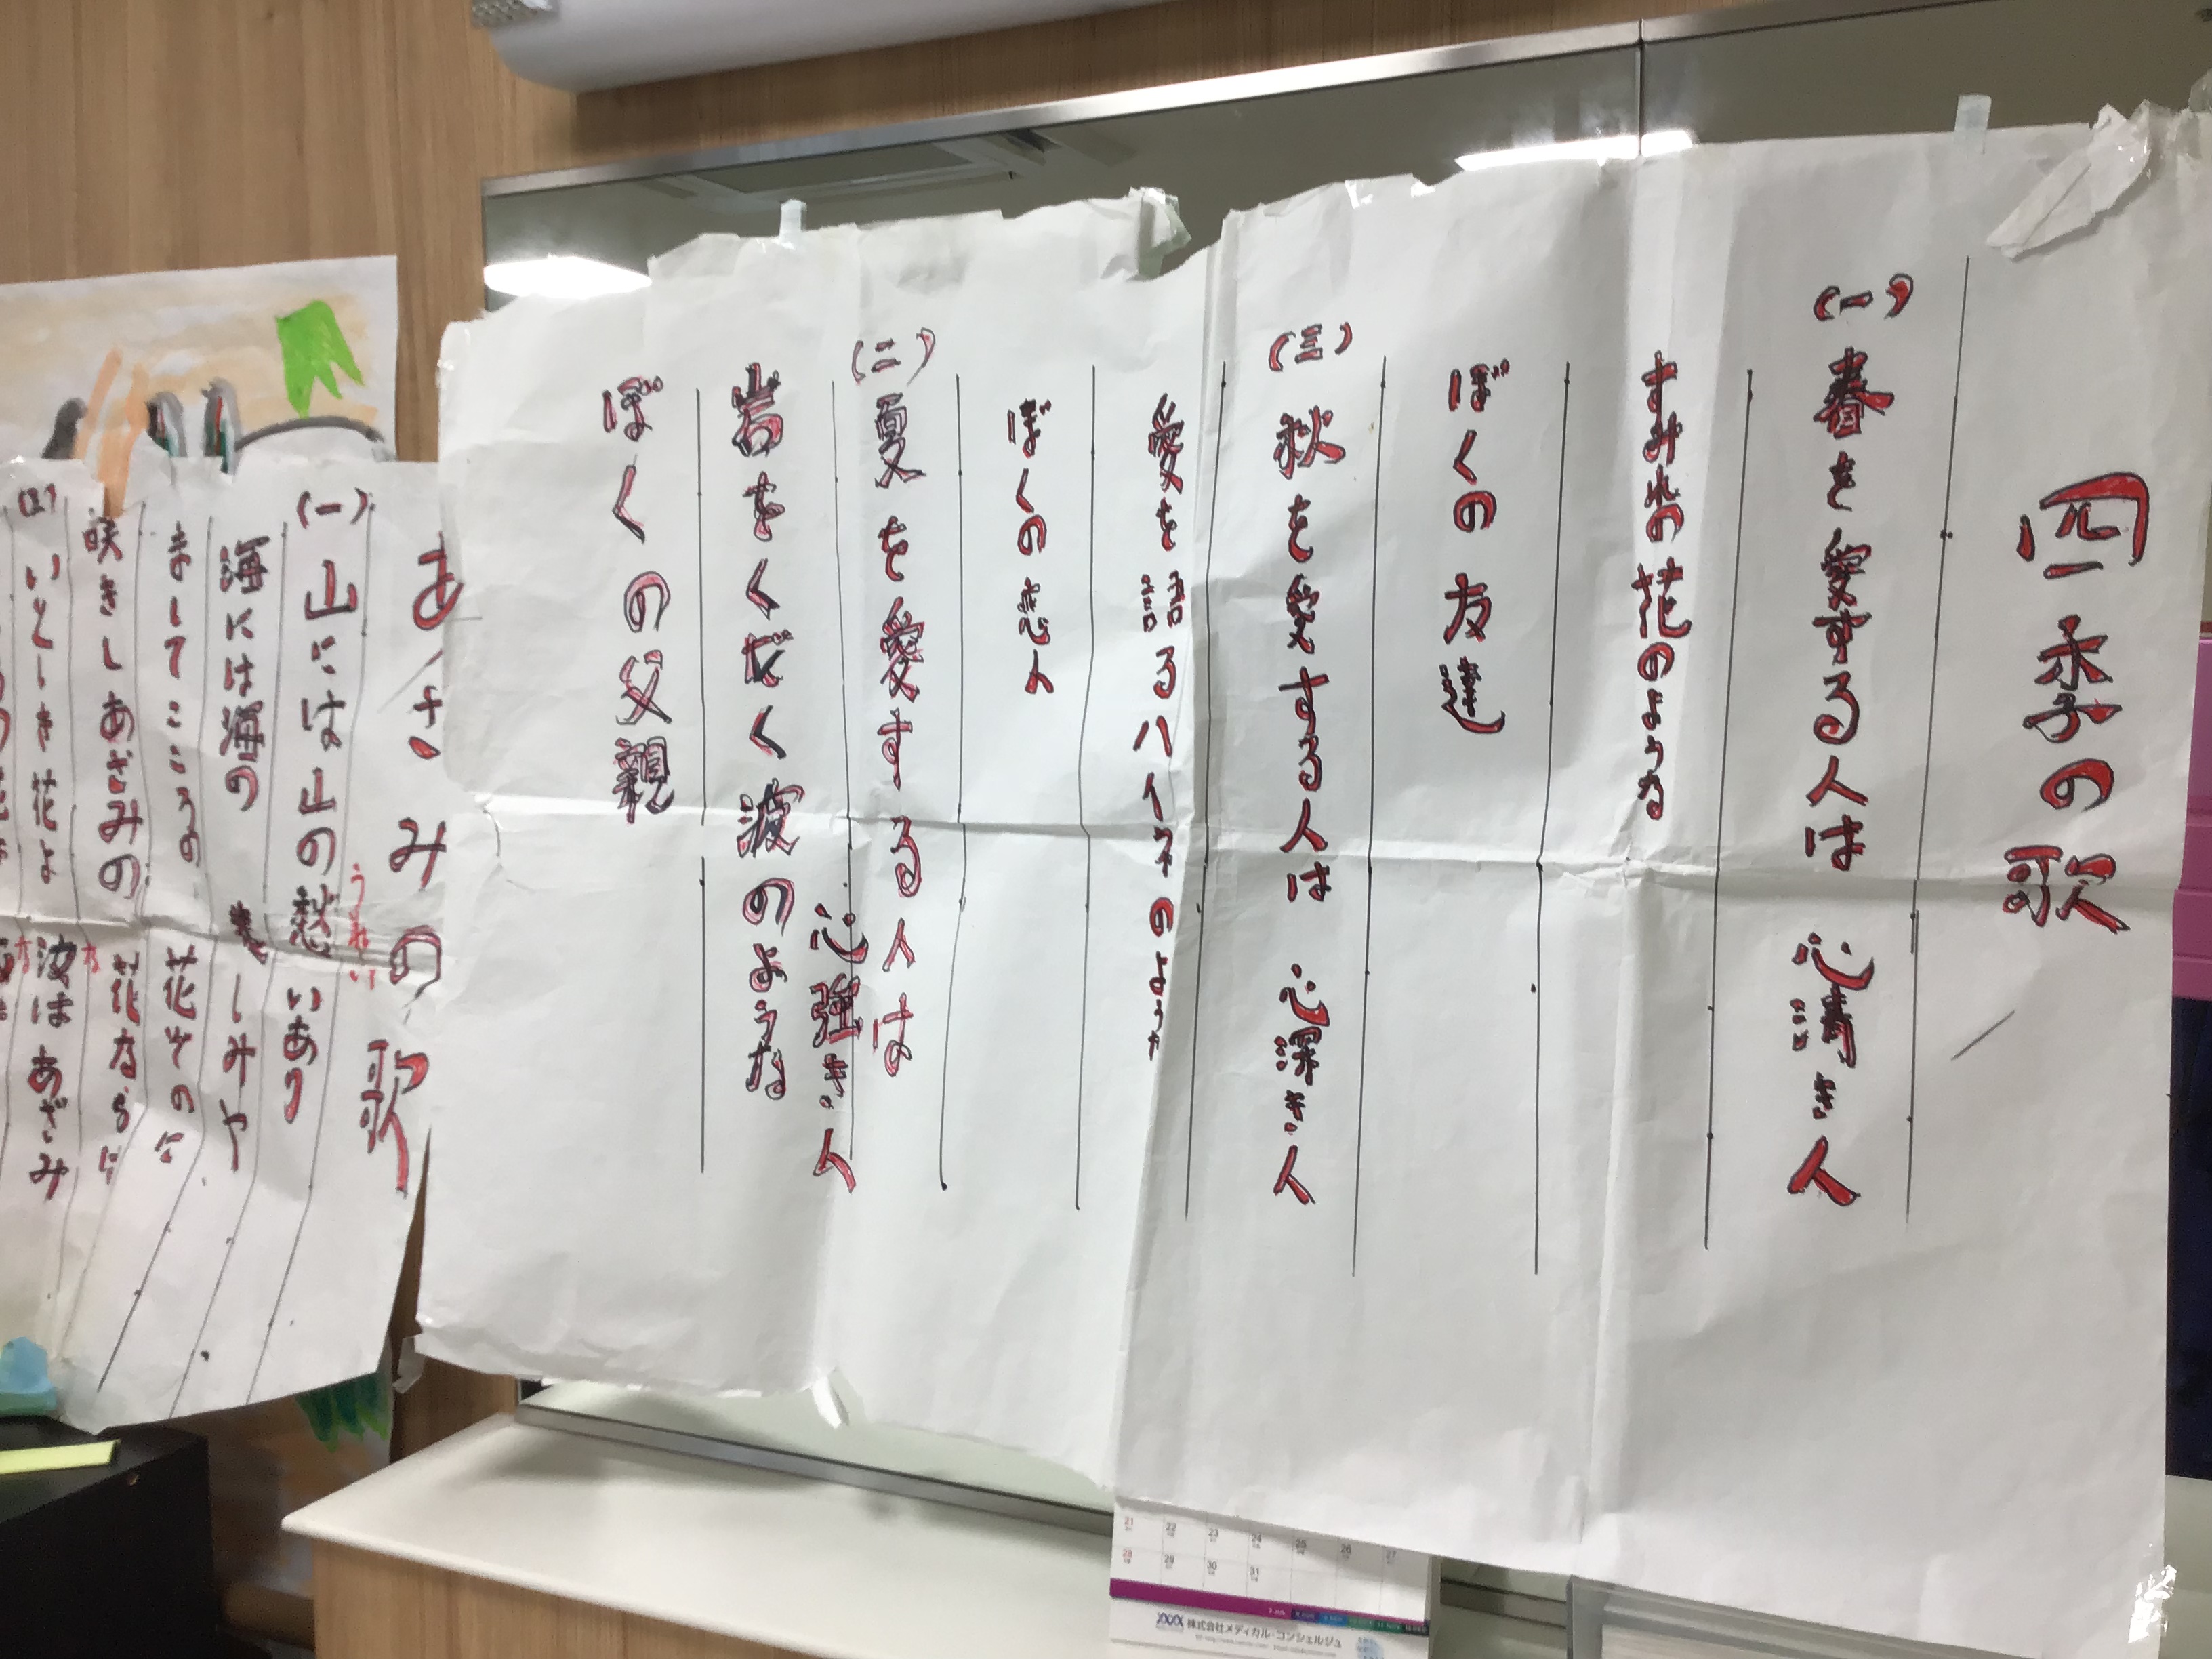 四季の歌
(一)春を愛する人は 心清き人
すみれの花のような
ぼくの友達
(三)秋を愛する人は 心深き人
愛を語るハイネのような
ぼくの恋人
(二)夏を愛する人は
心強き人
岩をくだく波のような
ぼくの父親
あざみの歌
(一)山には山の愁いあり
うれい
海には海の 悲しみや
ましてこころの 花ぞのに
咲きしあざみの 花ならば
いとしき花よ 汝はあざみ
な
21 22 23 24 25 26 27
28 29 30 31
株式会社メディカル・コンシェルジュ